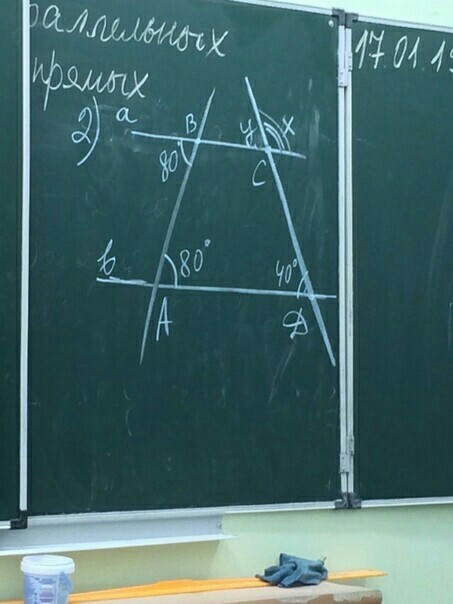 раллельных
прямых
17.01.19
2)
a
B
y
x
80
C
b
80°
40°
A
D